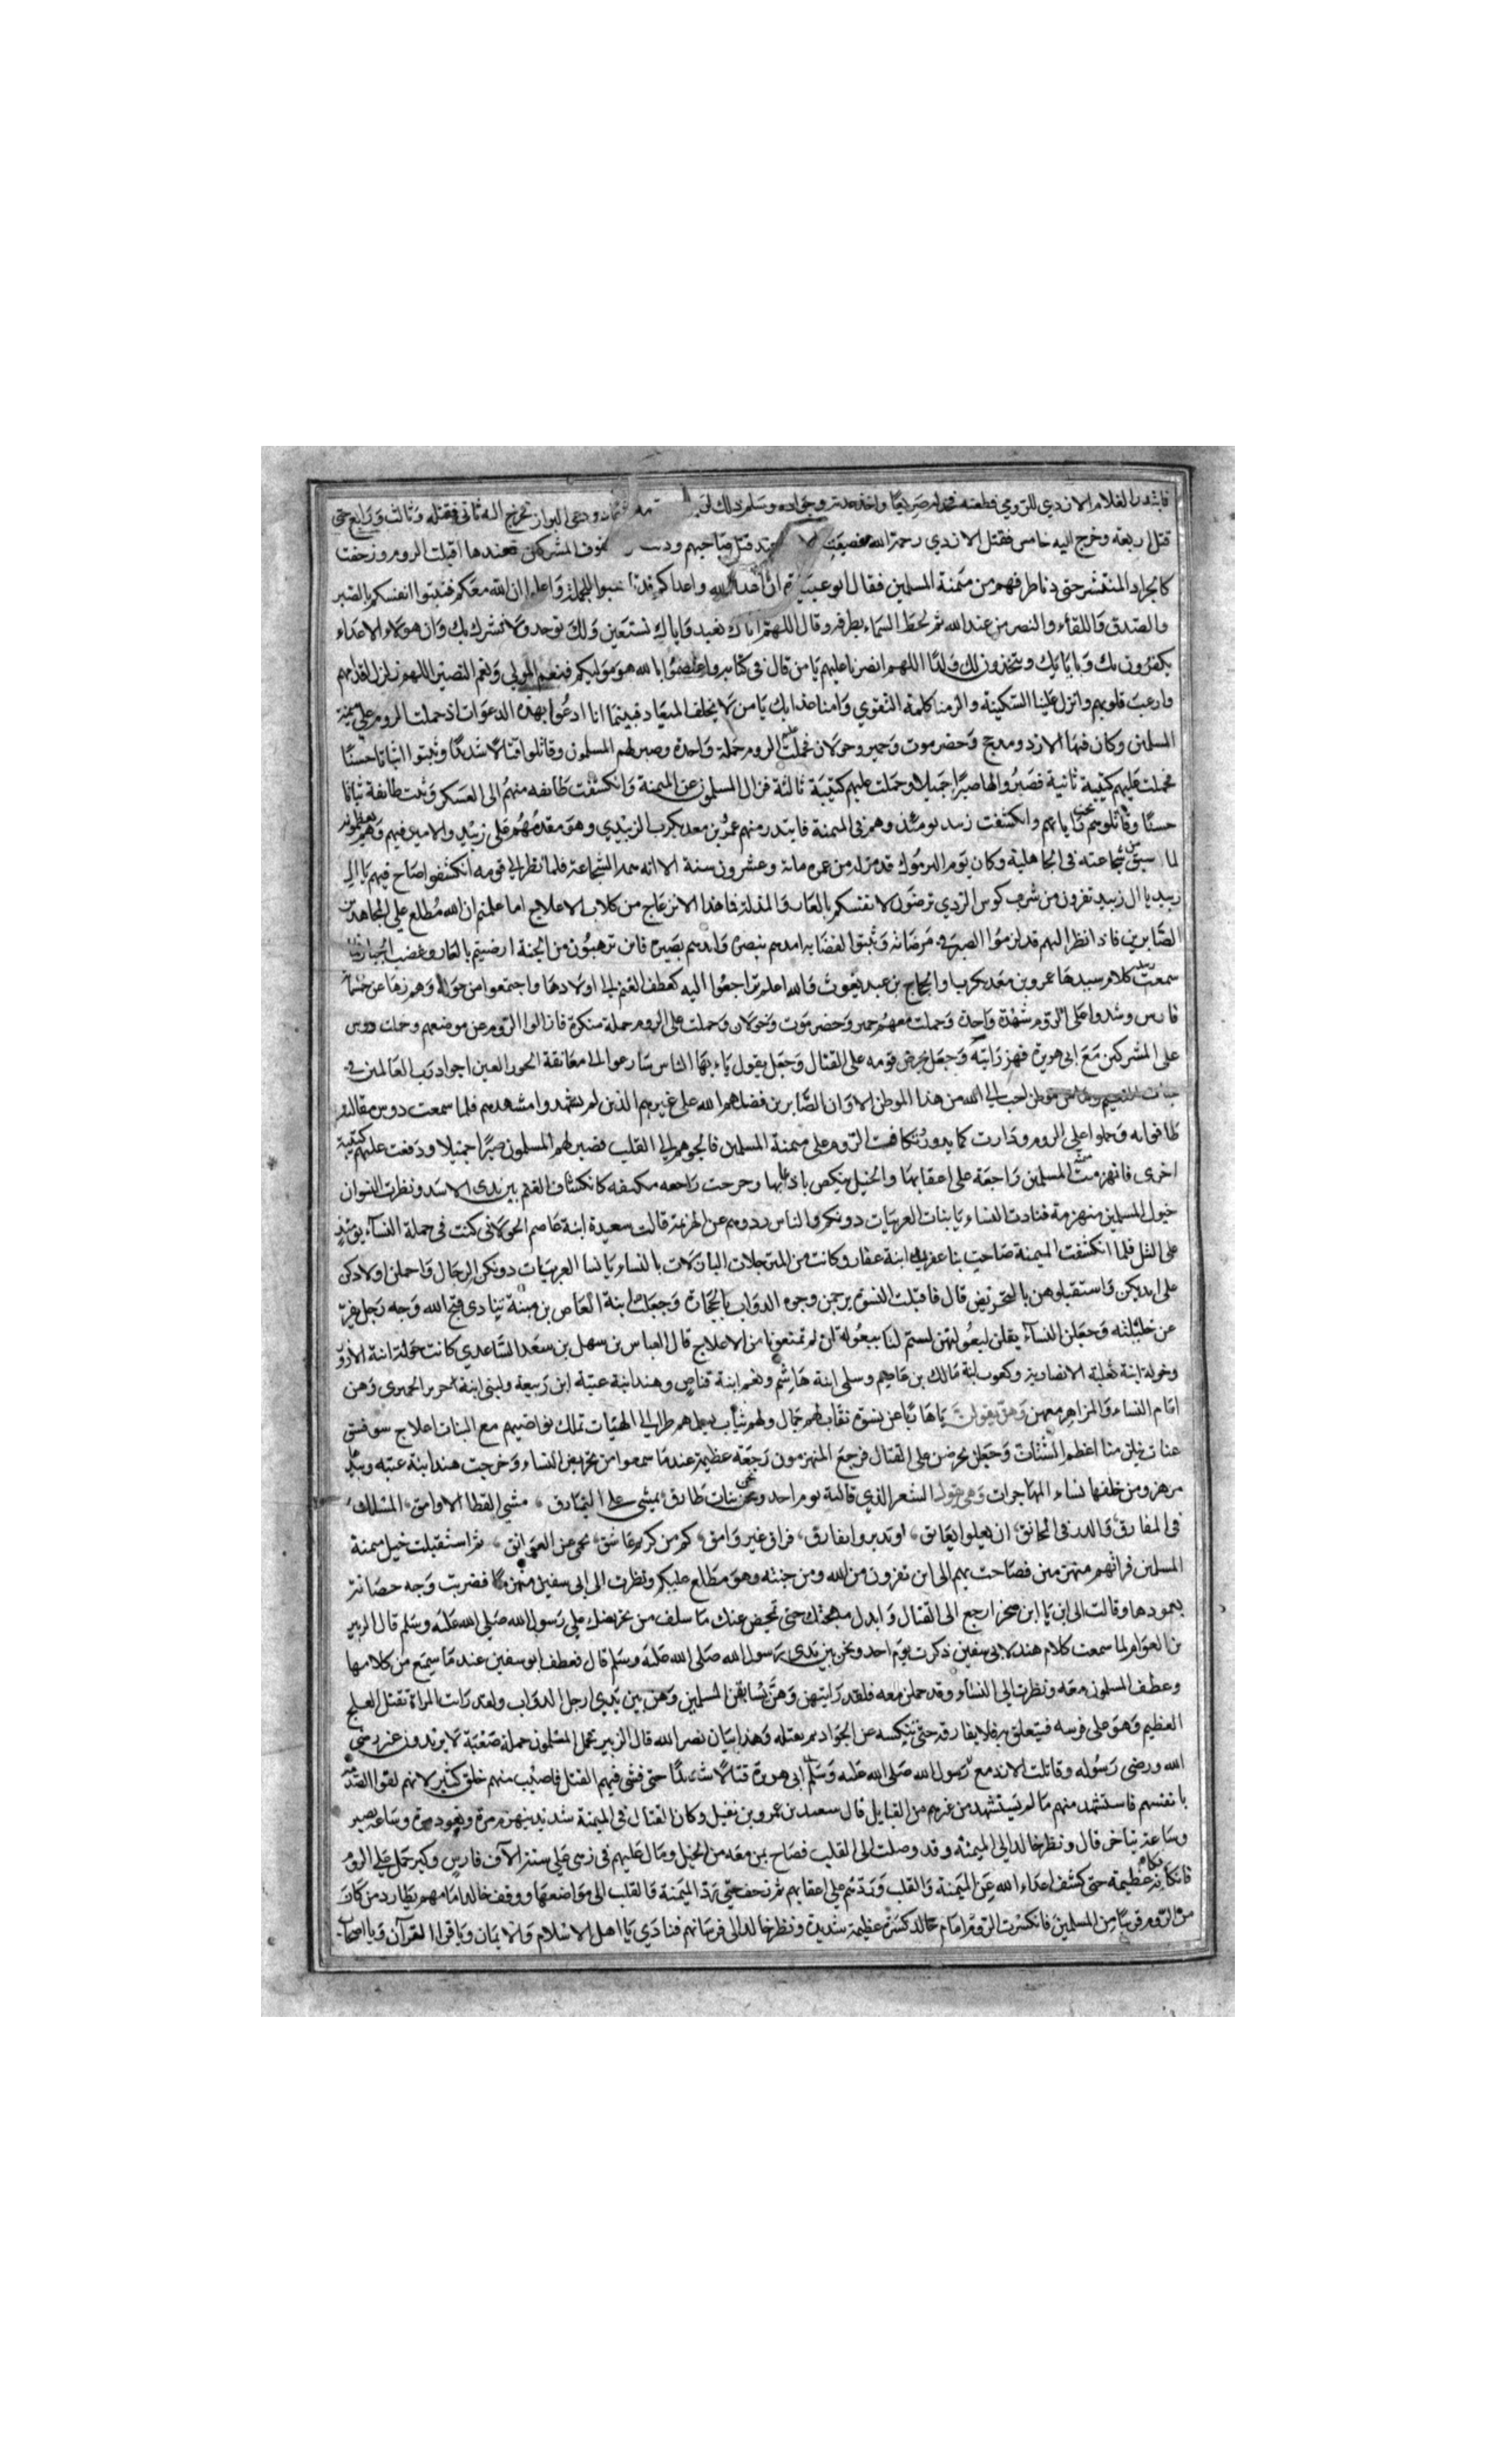 فابتدر الغلام الازدي للرومي فطعنه صريعا واخذ عدته وجواده وسلم ذلك ودعى البراز فخرج اليه ثاني فقتله وثالث ورابع حتى
قتل اربعة وخرج اليه خامس فقتل الازدي رحمة الله فغضبت عند قتل صاحبهم ودنت صفوف المشركين فعندها اقبلت الروم وزحفت
كالجراد المنتشر حتى دنا طرفهم من ميمنة المسلمين فقال ابو عبيدة ان اعداء الله واعداكم قد واعلموا ان الله معكم فثبتوا انفسكم بالصبر
والصدق واللقاء والنصر من عند الله ثم لحظ السماء بطرفه وقال اللهم اياك نعبد واياك نستعين ولك نوحد ولا نشرك بك وان هولاء الاعداء
يكفرون بك وباياتك ويتخذون لك ولدا اللهم انصرنا عليهم يا من قال في كتابه واعتصموا بالله هو موليكم فنعم المولى ونعم النصير اللهم زلزل اقدامهم
وارعب قلوبهم وانزل علينا السكينة والزمنا كلمة التقوى وامنا عذابك يا من لا يخلف الميعاد فبينما انا ادعوا بهذه الدعوات اذ حملت الروم على ميمنة
المسلمين وكان فيها الازد ومذحج وحضرموت وحمير وخولان فحملت الروم حملة واحدة وصبر لهم المسلمون وقاتلوا قتالا شديدا وثبتوا اثباتا حسنا
فحملت عليهم كتيبة ثانية فصبروا لها صبرا جميلا وحملت عليهم كتيبة ثالثة فزال المسلمون عن الميمنة وانكشفت طايفه منهم الى العسكر وثبت طايفة ثباتا
حسنا وقاتلوهم تحت راياتهم وانكشفت زبيد يومئذ وهم في الميمنة فابتدر منهم عمرو بن معديكرب الزبيدي وهو مقدمهم على زبيد والامير فيهم وهم يعظمونه
لما سبق من شجاعته في الجاهلية وكان يوم اليرموك قد مر له من عمره مائة وعشرون سنة الا انه الشجاعة فلما نظر الى قومه انكشفوا صاح فيهم يا ال
زبيد يا ال زبيد تفرون من شرب كوس الردي ترضون لانفسكم بالعار والمذلة فما هذا الانزعاج من كلاب الاعلاج اما علمتم ان الله مطلع على المجاهدين
الصابرين فاذا نظر اليهم قد لزموا الصبر في مرضاته وثبتوا لقضايه امدهم بنصره وايدهم بصبره فاين تذهبون من الجنة ارضيتم بالعار وغضب الجبار فلما
سمعت زبيد كلام سيدها عمرو بن معديكرب والحجاج بن عبد يغوث والله اعلم تراجعوا اليه كعطف الغنم الى اولادها واجتمعوا من حوله وهم زها عن خمسماية
فارس وشدوا على الروم شدة واحدة وحملت معهم حمير وحضرموت وخولان وحملت على الروم حملة منكرة فازالوا الروم عن موضعهم وحملت دوس
على المشركين مع ابي هريرة فهز رايته وجعل يحرض قومه على القتال وجعل يقول يا ايها الناس سارعوا الى معانقة الحور العين اجوار رب العالمين في
جنات النعيم وما من موطن احب الى الله من هذا الموطن الا وان الصابرين فضلهم الله على غيرهم الذين لم يشهدوا مشهدهم فلما سمعت دوس مقالته
طافوا به وحملوا على الروم ودارت كما يدور وتكاثفت الروم على ميمنة المسلمين فالجوهم الى القلب فصبر لهم المسلمون صبرا جميلا ودفعت عليهم كتيبة
اخرى فانهزمت ميمنة المسلمين راجعة على اعقابها والخيل ينكص باذنابها وخرجت راجعه منكشفه كانكشاف الغنم بين يدي الاسد ونظرت النسوان
خيول المسلمين منهزمة فنادت النساء يا بنات العربيات دونكم والناس ردوهم عن الهزيمة قالت سعيدة ابنة عاصم الخولاني كنت في جملة النساء يومئذ
على التل فلما انكشفت الميمنة صاحت بنا عفيرة ابنة عفار وكانت من المترجلات البازلات بالنساء يا نسا العربيات دونكن الرجال واحملن اولادكن
على ايديكن واستقبلوهن بالتحريض قال فاقبلت النسوة يرجمن وجوه الدواب بالحجارة وجعلت ابنة العاص بن منبة تنادي قبح الله وجه رجل يفر
عن خليلته وجعلن النساء يقلن لبعولتهن لستم لنا ببعولة ان لم تمنعونا من الاعلاج قال العباس بن سهل بن سعد الساعدي كانت خولة ابنة الازور
وخولة ابنة ثعلبة الانصارية وكعوب ابنة مالك بن عاصم وسلمى ابنة هاشم ونعم ابنة قناص وهند ابنة عتبة ابن ربيعة ولبنى ابنة جرير الحميرى وهن
امام النساء والمزاهر معهن وهي يقولن ياهاربا عن نسوة نقاب لهم جمال ولهم ثياب الهيات تملك نواصيهم مع البنات اعلاج سو فسق
عتاه ينلن منا اعظم الشتات وجعلن يحرضن على القتال فرجع المنهزمون رجعة عظيمة عندما سمعوا من تحريض النساء وخرجت هند ابنة عتبه وبيدها
مزهر ومن خلفها نساء المهاجرات وهي تقول الشعر الذي قالته يوم احد نحن بنات طارق نمشي على النمارق مشي القطا الاوامق المسك
في المفارق والدر في المخانق ان يقبلوا نعانق او تدبروا نفارق فراق غير وامق كم من كريم عاشق نحمي عن العواتق ثم استقبلت خيل ميمنة
المسلمين فراتهم منهزمين فصاحت بهم الى اين تفرون من الله ومن جنته وهو مطلع عليكم ونظرت الى ابي سفين منهزما فضربت وجه حصانه
بعمودها وقالت الى اين يا ابن صخر ارجع الى القتال وابذل مهجتك حتى تمحص عنك ما سلف من تحريضك على رسول الله صلى الله عليه وسلم قال الزبير
بن العوام لما سمعت كلام هند لابي سفين ذكرت يوم احد ونحن بين يدي رسول الله صلى الله عليه وسلم قال فعطف ابو سفين عندما سمع من كلامها
وعطف المسلمون معه ونظرت الى النساء وقد حملن معه فلقد رايتهن وهن يسابقن المسلمين وهن بين يدي ارجل الدواب ولقد رات المراة تقتل العلج
العظيم وهو على فرسه فيتعلق به فلا يفارقه حتى ينكسه عن الجواد ثم يقتله وهذا بيان نصر الله قال الزبير بحمل المسلمون حملة صعبة لا يريدون غير رضى
الله ورضى رسوله وقاتلت الازد مع رسول الله صلى الله عليه وسلم ابي هريرة قتالا شديدا حتى فشى فيهم القتل فاصيب منهم خلق كثير لانهم لقوا الصدمة
بانفسهم فاستشهد منهم ما لم يستشهد من غيرهم من القبايل قال سعيد بن عمرو بن نفيل وكان القتال في الميمنة شديد ينهزم مرة ويعود مرة وساعة بصبر
وساعة يتاخر قال ونظر خالد الى الميمنة وقد وصلت الى القلب فصاح بمن معه من الخيل ومال عليهم في زهى على ستة الاف فارس وكبر حمل على الروم
فانكا نكاية عظيمة حتى كشف اعداء الله عن الميمنة والقلب وردهم على اعقابهم ثم زحف حتى رد الميمنة والقلب الى مواضعها ووقف خالد امامهم يطارد من كان
من الروم قريبا من المسلمين فانكسرت الروم امام خالد كسرة عظيمة شديدة ونظر خالد الى فرسانهم فنادي يا اهل الاسلام والايمان ويا قراء القرآن ويا اصحاب